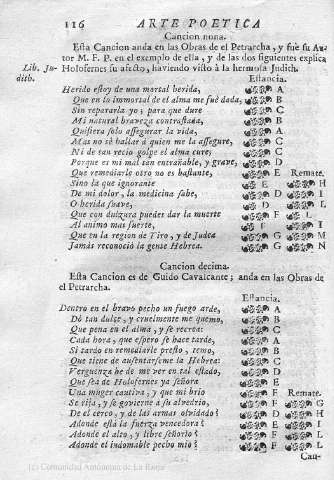 116 ARTE POETICA
Cancion nona.
Esta Cancion anda en las Obras de el Petrarcha, y fuè su Au-
tor M. F. P. en el exemplo de ella, y de las dos siguientes explica
Lib. Ju- Holofernes su afecto, haviendo visto à la hermosa Judich.
dith. Estancia.
Herido estoy de una mortal herida, A
Que en lo immortal de el alma me fuè dada, B
Sin repararla yo; para que dure C
Mi natural braveza contrastada, B
Quisiera solo assegurar la vida, A
Mas no sè hallar à quien me la assegure, C
Ni de tan recio golpe el alma cure; C
Porque es mi mal tan entrañable, y grave, D
Que remediarlo otro no es bastante, E Remate.
Sino la que ignorante E H
De mi dolor, la medicina sabe, D I
O herida suave, D L
Que con dulzura puedes dar la muerte F L
Al animo mas fuerte, F I
Que en la region de Tiro, y de Judea G M
Jamás reconociò la gente Hebrea. G N
Cancion decima.
Esta Cancion es de Guido Cavalcante; anda en las Obras de
el Petrarcha.
Estancia.
Dentro en el bravo pecho un fuego arde, A
Dò tan dulce, y cruelmente me quemo, B
Que pena en el alma, y se recrea: C
Cada hora, que espero se hace tarde, A
Si tardo en remediarle presto, temo, B
Que tiene de ausentarseme la Hebrea: C
Verguenza he de me ver en tal estado, D
Que sea de Holofernes ya señora E
Una muger cautiva, y que mi brio F Remate.
Se rija, y se govierne à su alvedrio, F G
De el cerco, y de las armas olvidado? D H
Adonde està la fuerza vencedora? E I
Adonde el alto, y libre señorio? F L
Adonde el indomable pecho mio? F L
Can-
(c) Comunidad Autónoma de La Rioja